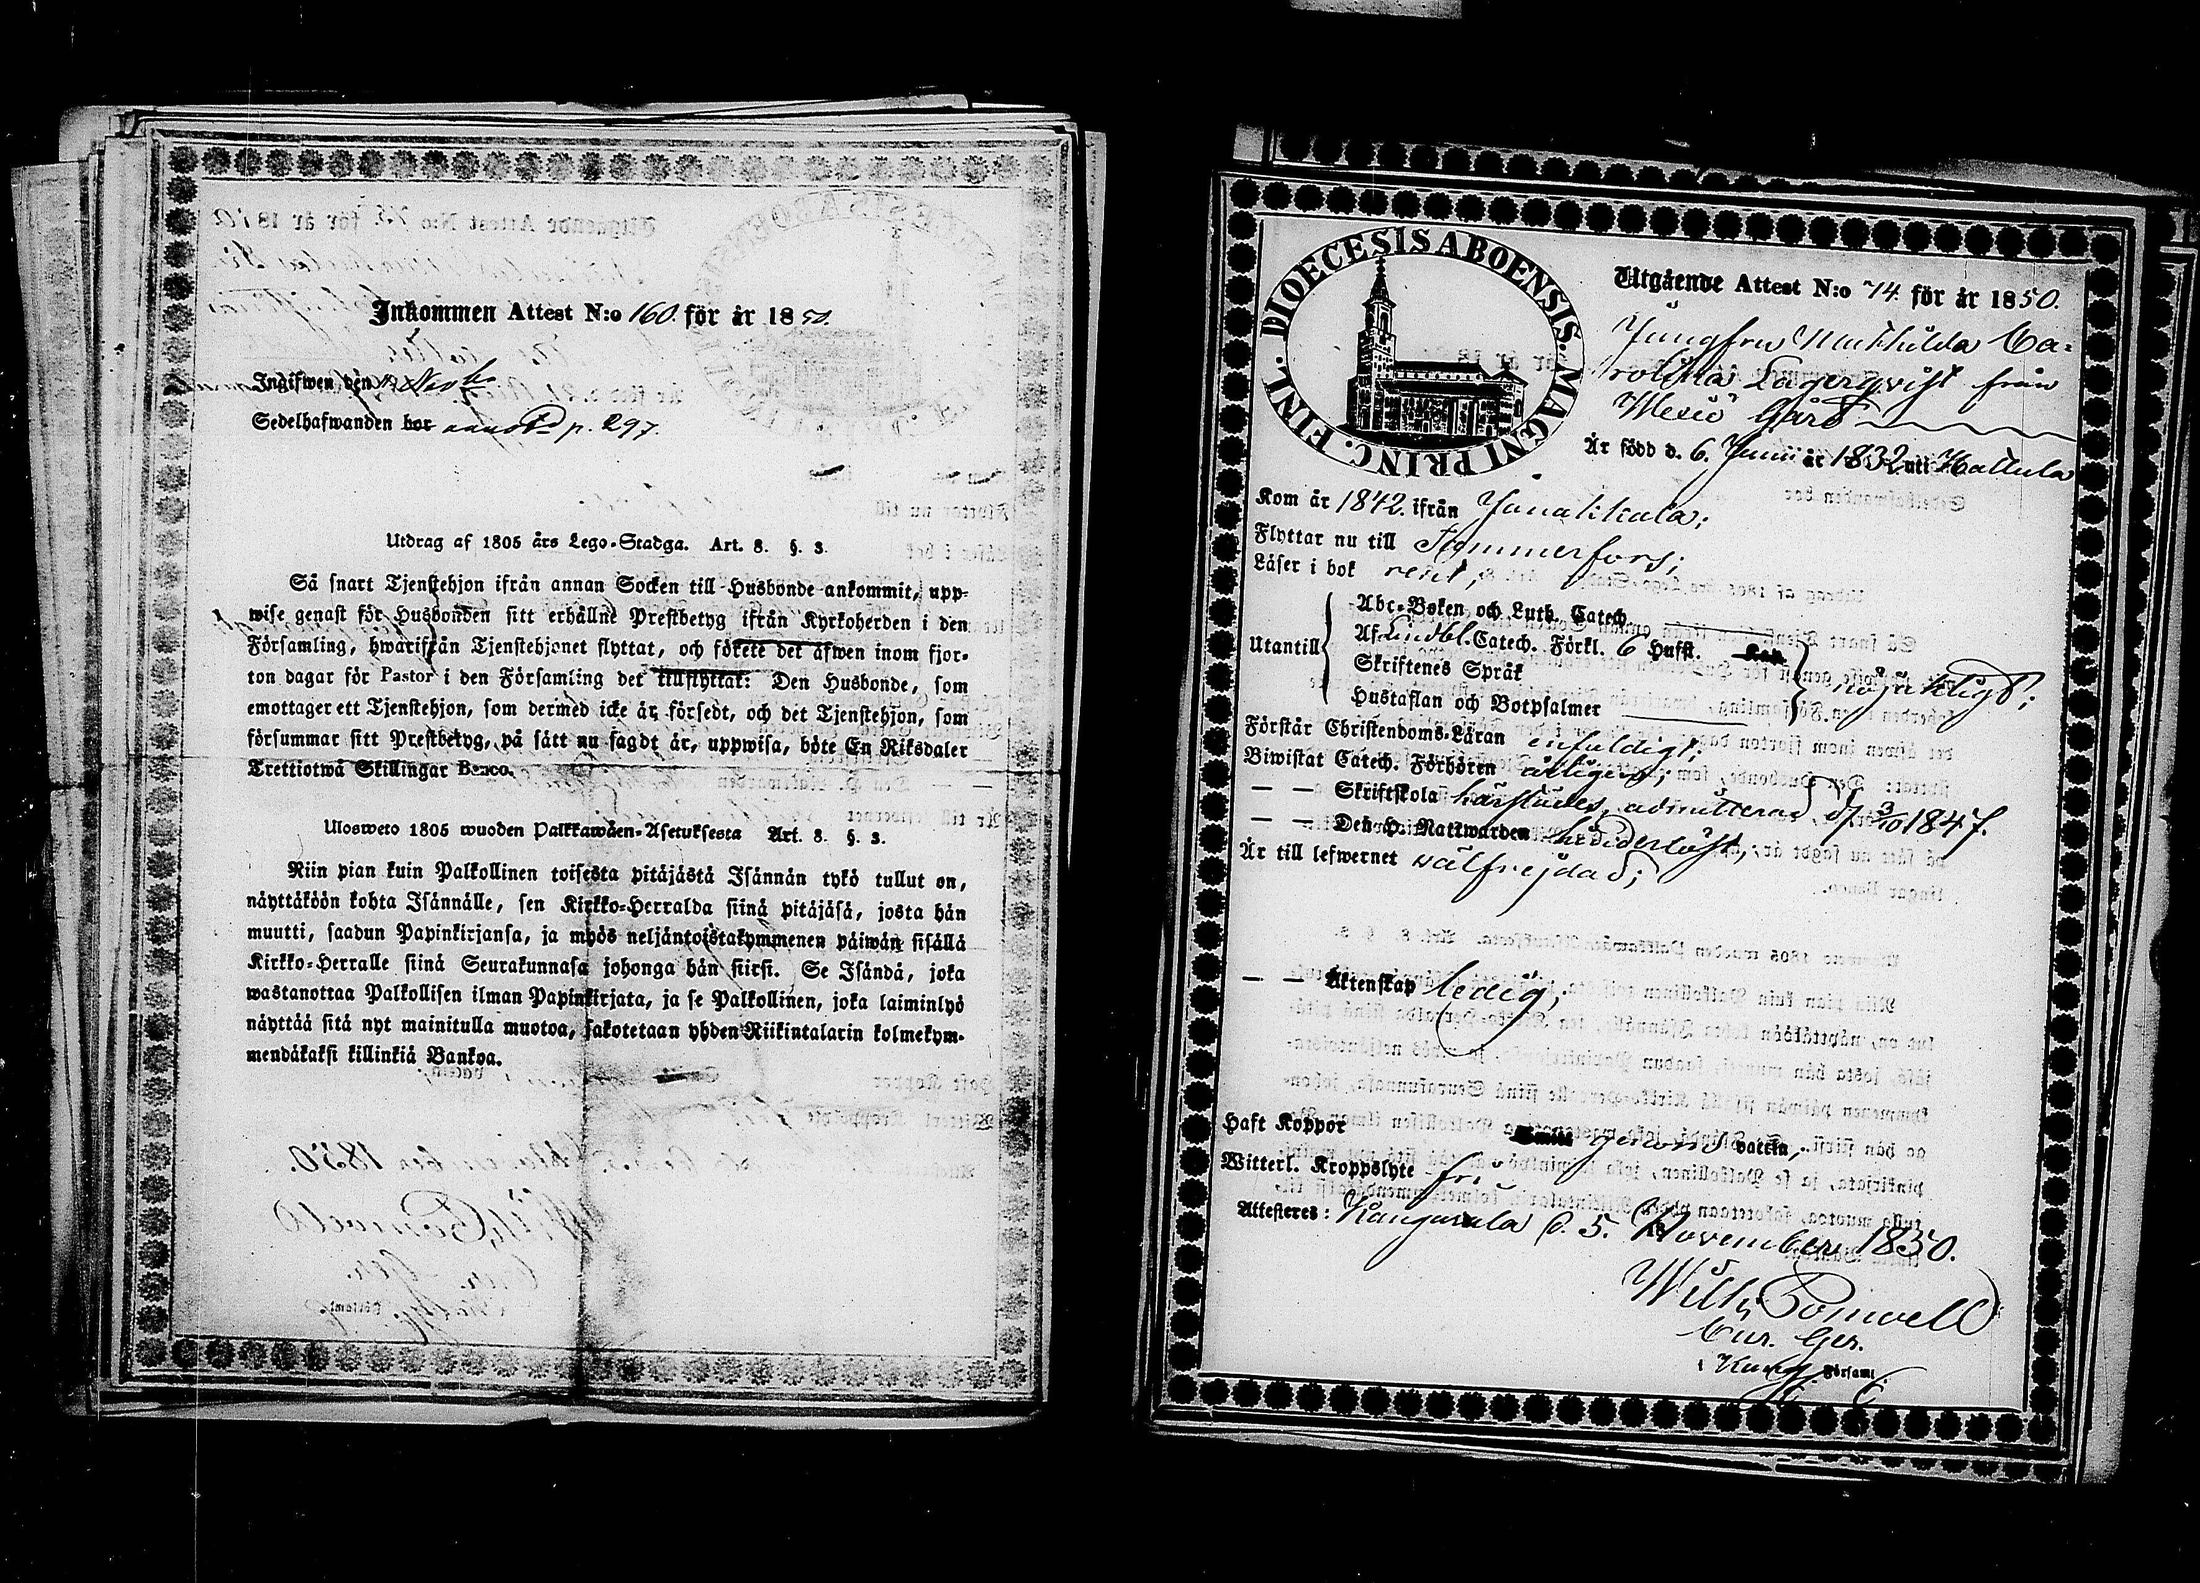 Inkommen Attest N:o 160. för år 1850.
Ingifwen den
Sedelhafwanden bor p. 297.
Utdrag af 1805 års Lego-Stadga. Art. 8. §. 3.
Så snart Tjenstehjon ifrån annan Socken till Husbonde ankommit, upp-
wise genast för Husbonden sitt erhållne Prestbetyg ifrån Kyrkoherden i den
Församling, hwarifrån Tjenstehjonet flyttat, och förete det äfwen inom fjor-
ton dagar för Pastor i den Församling det tillflyttat: Den Husbonde, som
emottager ett Tjenstehjon, som dermed icke är försedt, och det Tjenstehjon, som
försummar sitt Prestbetyg, på sätt nu sagdt är, uppwisa, böte En Riksdaler
Trettiotwå Skillingar Banco.
Ulosweto 1805 wuoden Palkkawäen-Asetuksesta Art. 8. §. 3.
Niin pian kuin Palkollinen toisesta pitäjästä Isännän tykö tullut on,
näyttäköön kohta Isännälle, sen Kirkko-Herralda siinä pitäjäsä, josta hän
muutti, saadun Papinkirjansa, ja myös neljäntoistakymmenen päiwän sisällä
Kirkko-Herralle siinä Seurakunnasa johonga hän siirsi. Se Isändä, joka
wastanottaa Palkollisen ilman Papinkirjata, ja se Palkollinen, joka laiminlyö
näyttää sitä nyt mainitulla muotoa, sakotetaan yhden Riikintalarin kolmekym-
mendäkaksi killinkiä Bankoa.
DIOECESIS ABOENSIS. MAGNI PRINC. FINL.
Utgående Attest N:o 74. för år 1850.
Jungfru Mathilda Ca-
rolina Lagerqvist från
Wesiö Gård
Är född d. 6. Junii år 1832 uti Hattula
Kom år 1842. ifrån Janakkala;
Flyttar nu till Tammerfors;
Läser i bok rent,
Utantill
Abc-Boken och Luth. Catech.
Af Lindbl. Catech. Förkl. 6 Hufst. Kap.
Skriftenes Språk
Hustaflan och Botpsalmer
nöjaktigt;
Förstår Christendoms-Läran enfaldigt;
Biwistat Catech. Förhören årligen;
— — Skriftskola härstädes, admitterad d. 3/10 1847.
— — Den H. Nattwarden hederligt,
Är till lefwernet välfrejdad;
— — Äktenskap ledig;
Haft Koppor genom vaccin,
Witterl. Kroppslyte fri
Attesteres: Kangasala d. 5. November 1850.
Wilh. Pomoell
Cur. Ger.
i Kang. Församl.